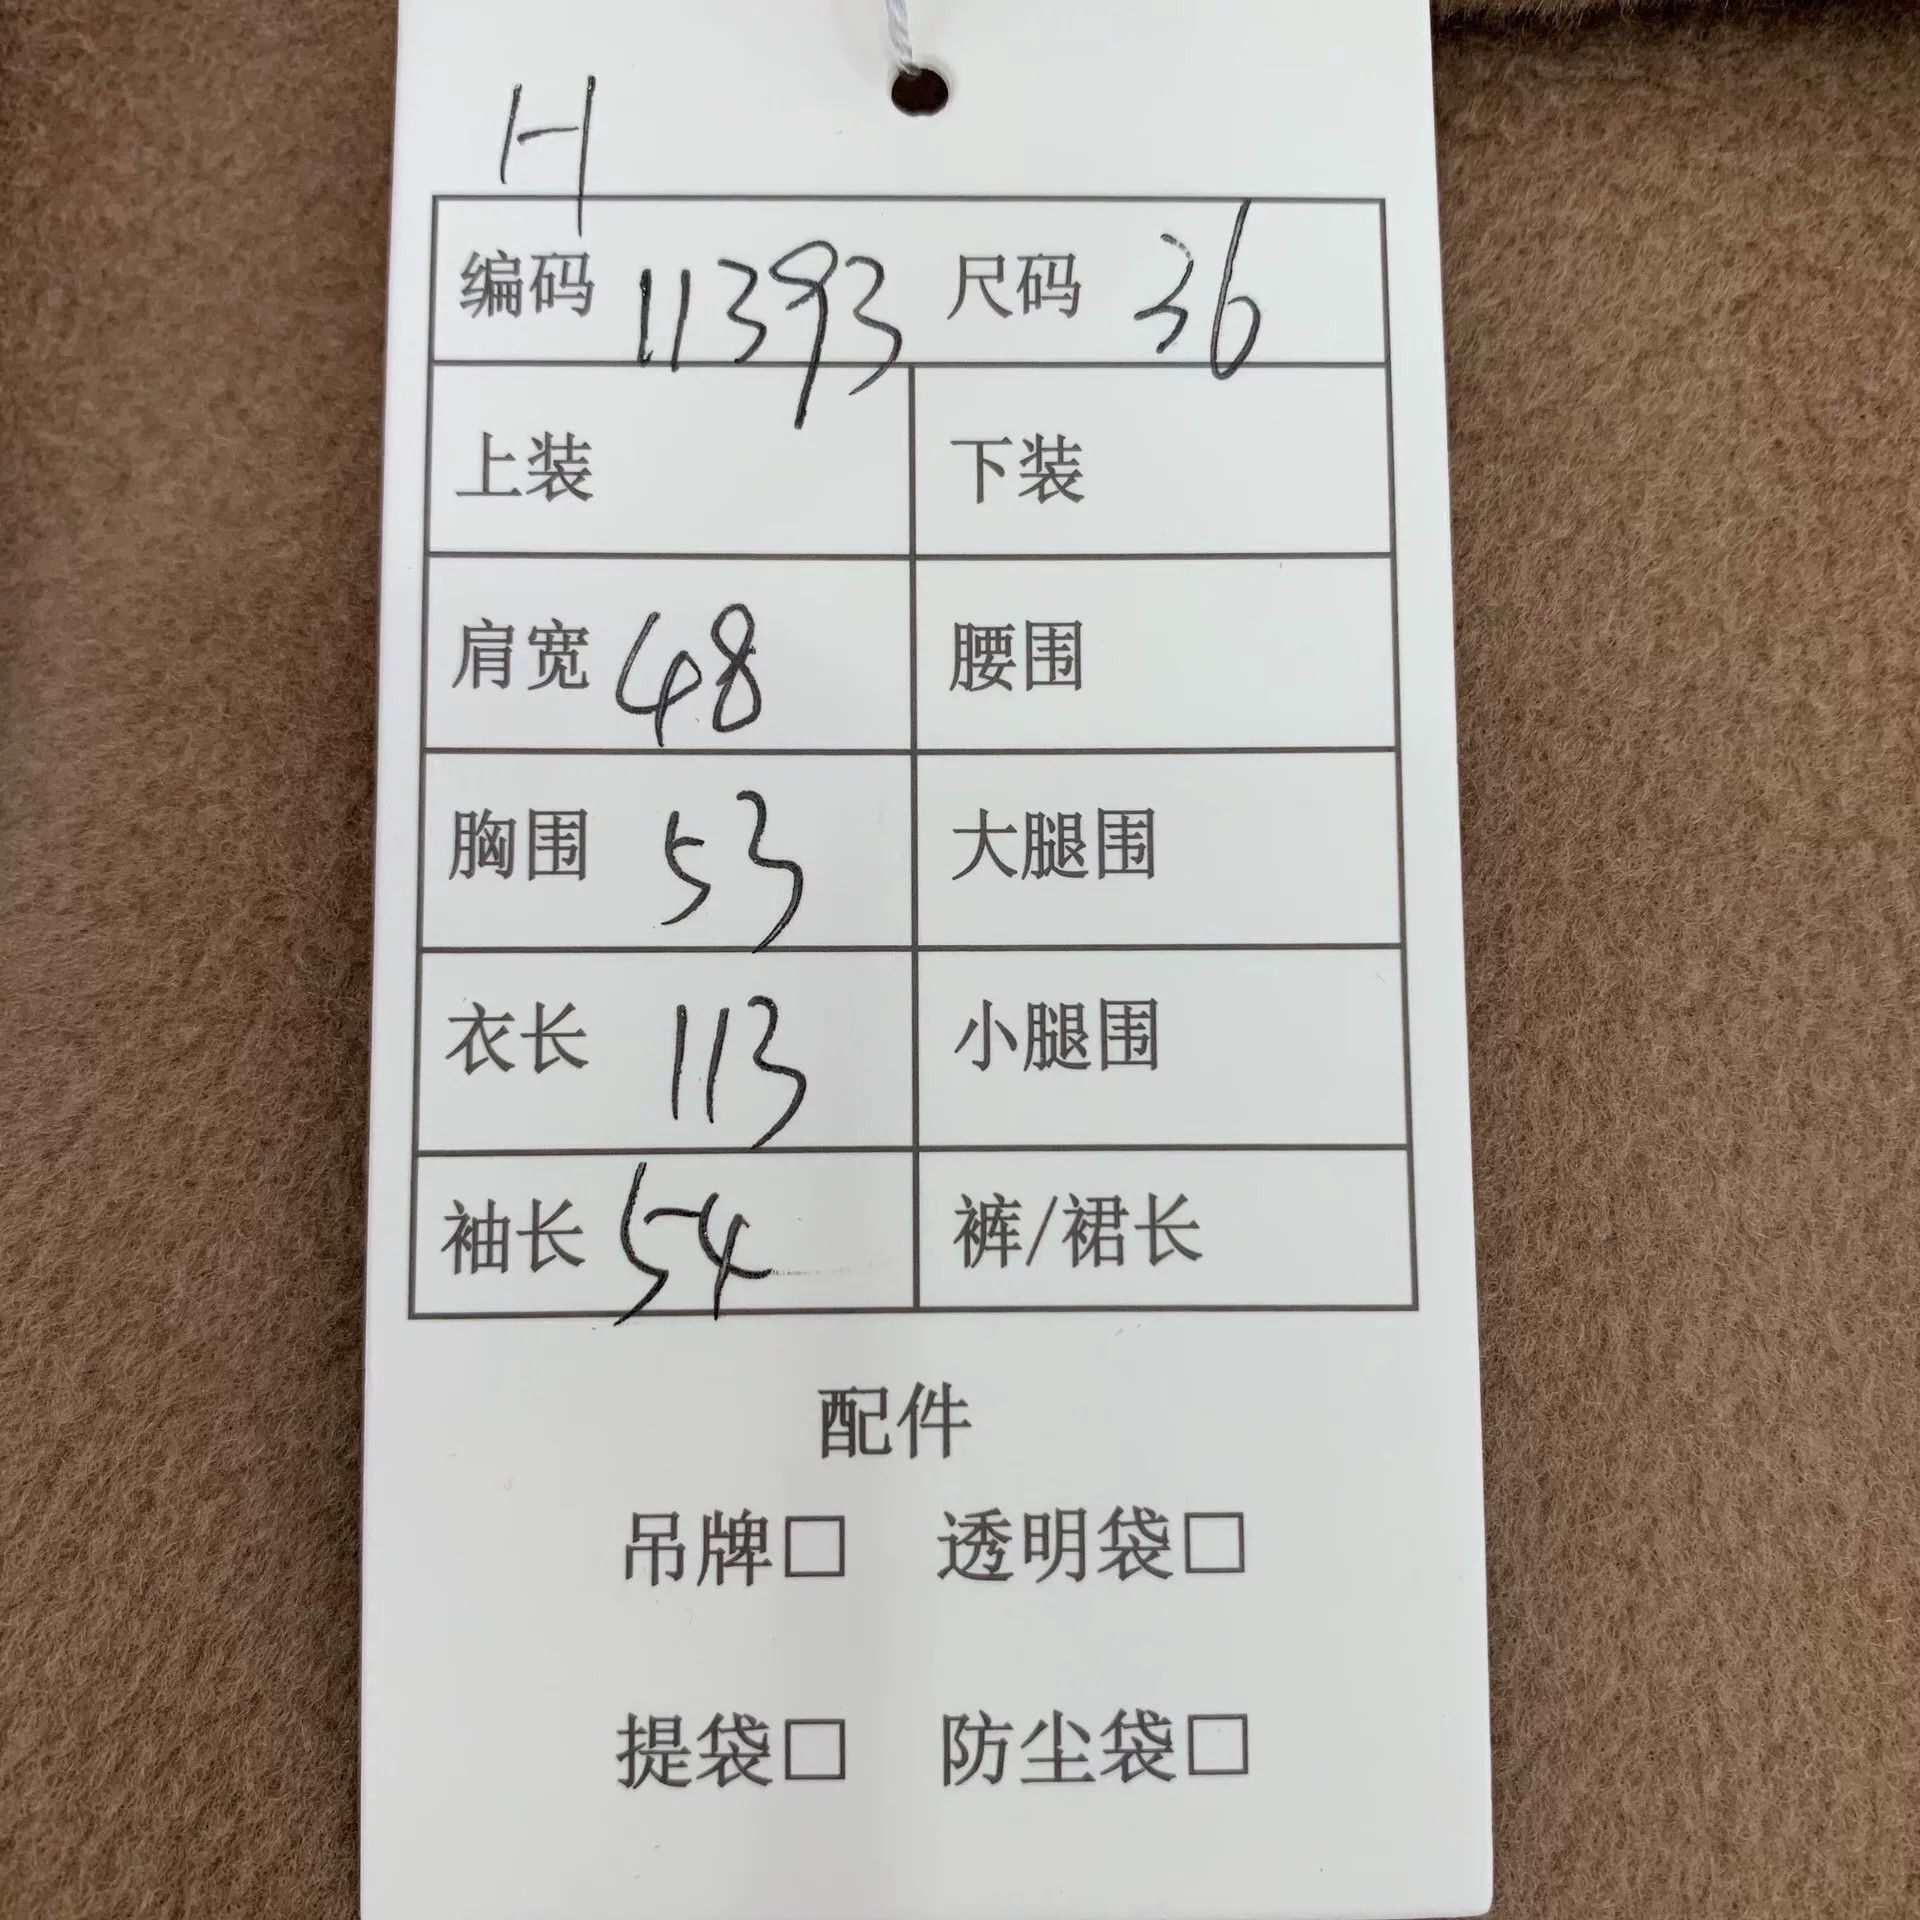 H
编码 11393 尺码 36
上装 下装
肩宽 48 腰围
胸围 53 大腿围
衣长 113 小腿围
袖长 54 裤/裙长
配件
吊牌□ 透明袋□
提袋□ 防尘袋□